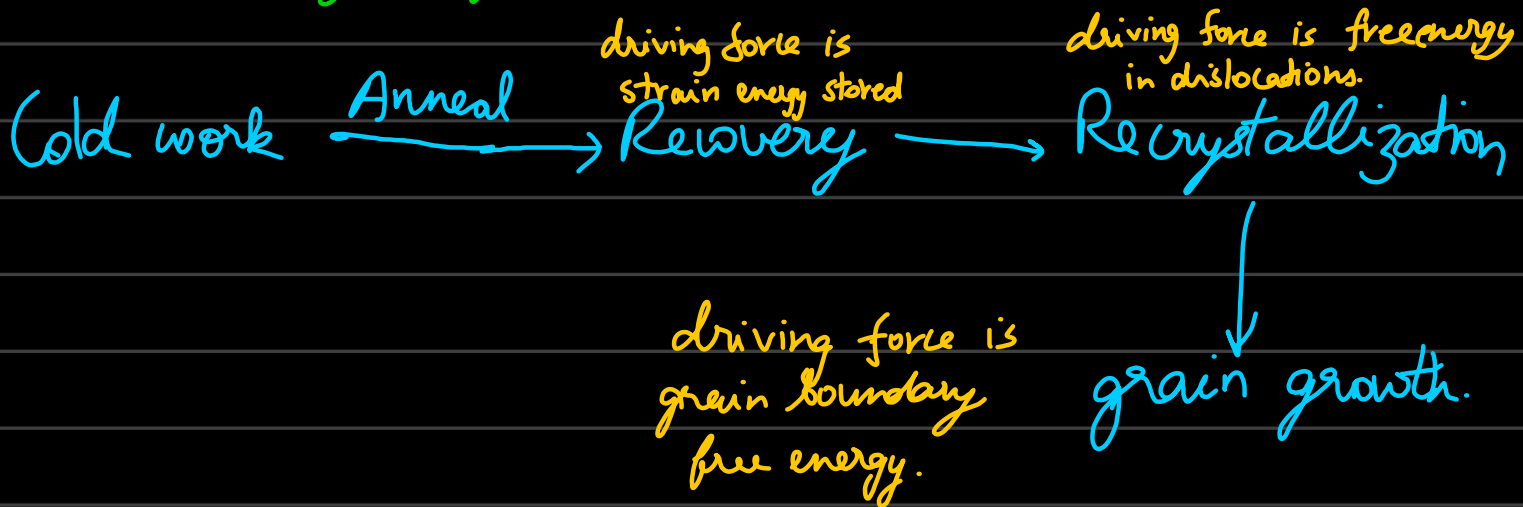 driving force is
strain energy stored
driving force is freeenergy
in dislocations.
Cold work
Anneal
Recovery
Recrystallization
driving force is
grain boundary
free energy.
grain growth.